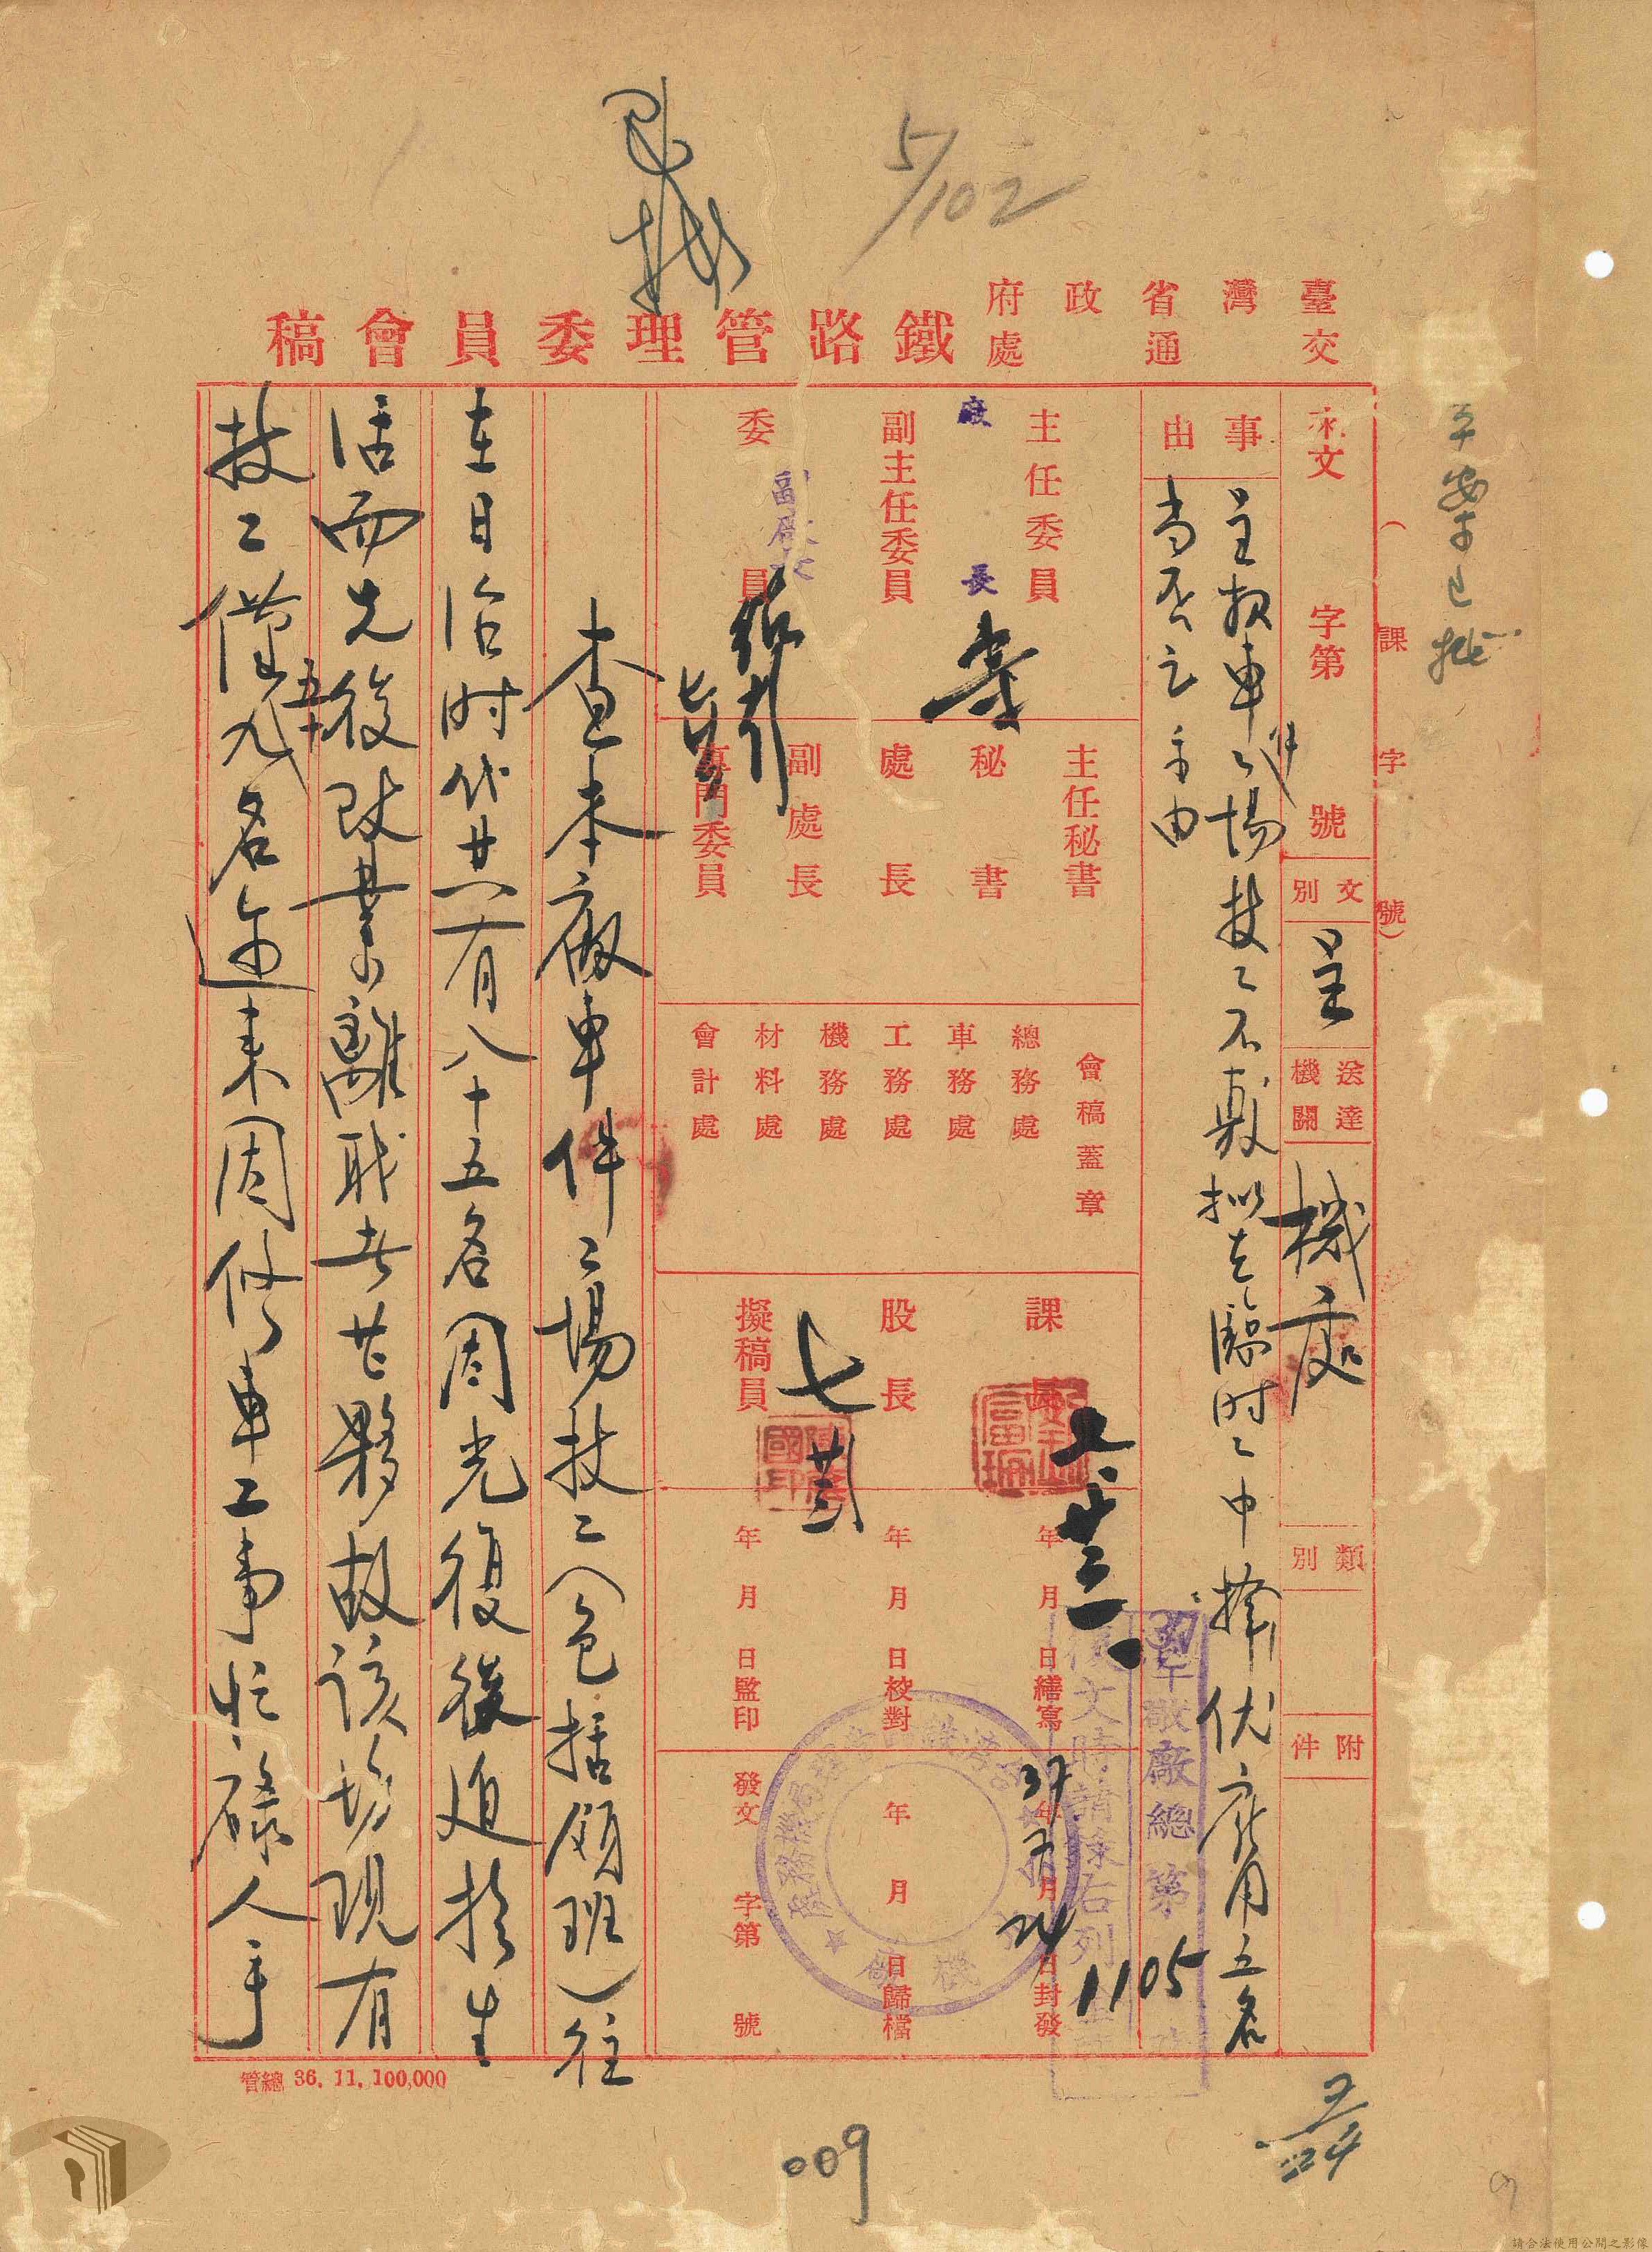 5/102
臺灣省政府
交通處
鐵路管理委員會稿
本案已批
（課字號）
來文 字第 號
文別 呈
送達機關 機處
類別
附件
事由
呈報車件工場技工不敷擬在臨時工中擇優雇用五名
當否乞示由
主任委員
廠長
副主任委員
副廠長
委員
主任秘書
秘書
處長
副處長
專門委員
會稿蓋章
總務處
車務處
工務處
機務處
材料處
會計處
課長
股長
擬稿員
七 廿三
年月日繕寫
年月日校對
年月日監印
37年7月24日封發
年月日歸檔
發文 字第 號
復文時請條右列
敝廠總第 1105
查本廠車件工場技工（包括領班）往
在日治時代共有八十五名周光復後迫於生
活而先後改業離職者甚夥故該場現有
技工僅五十九名近來因修車工事忙碌人手
管總 36. 11. 100,000
7/24
009
請合法使用公開之影像